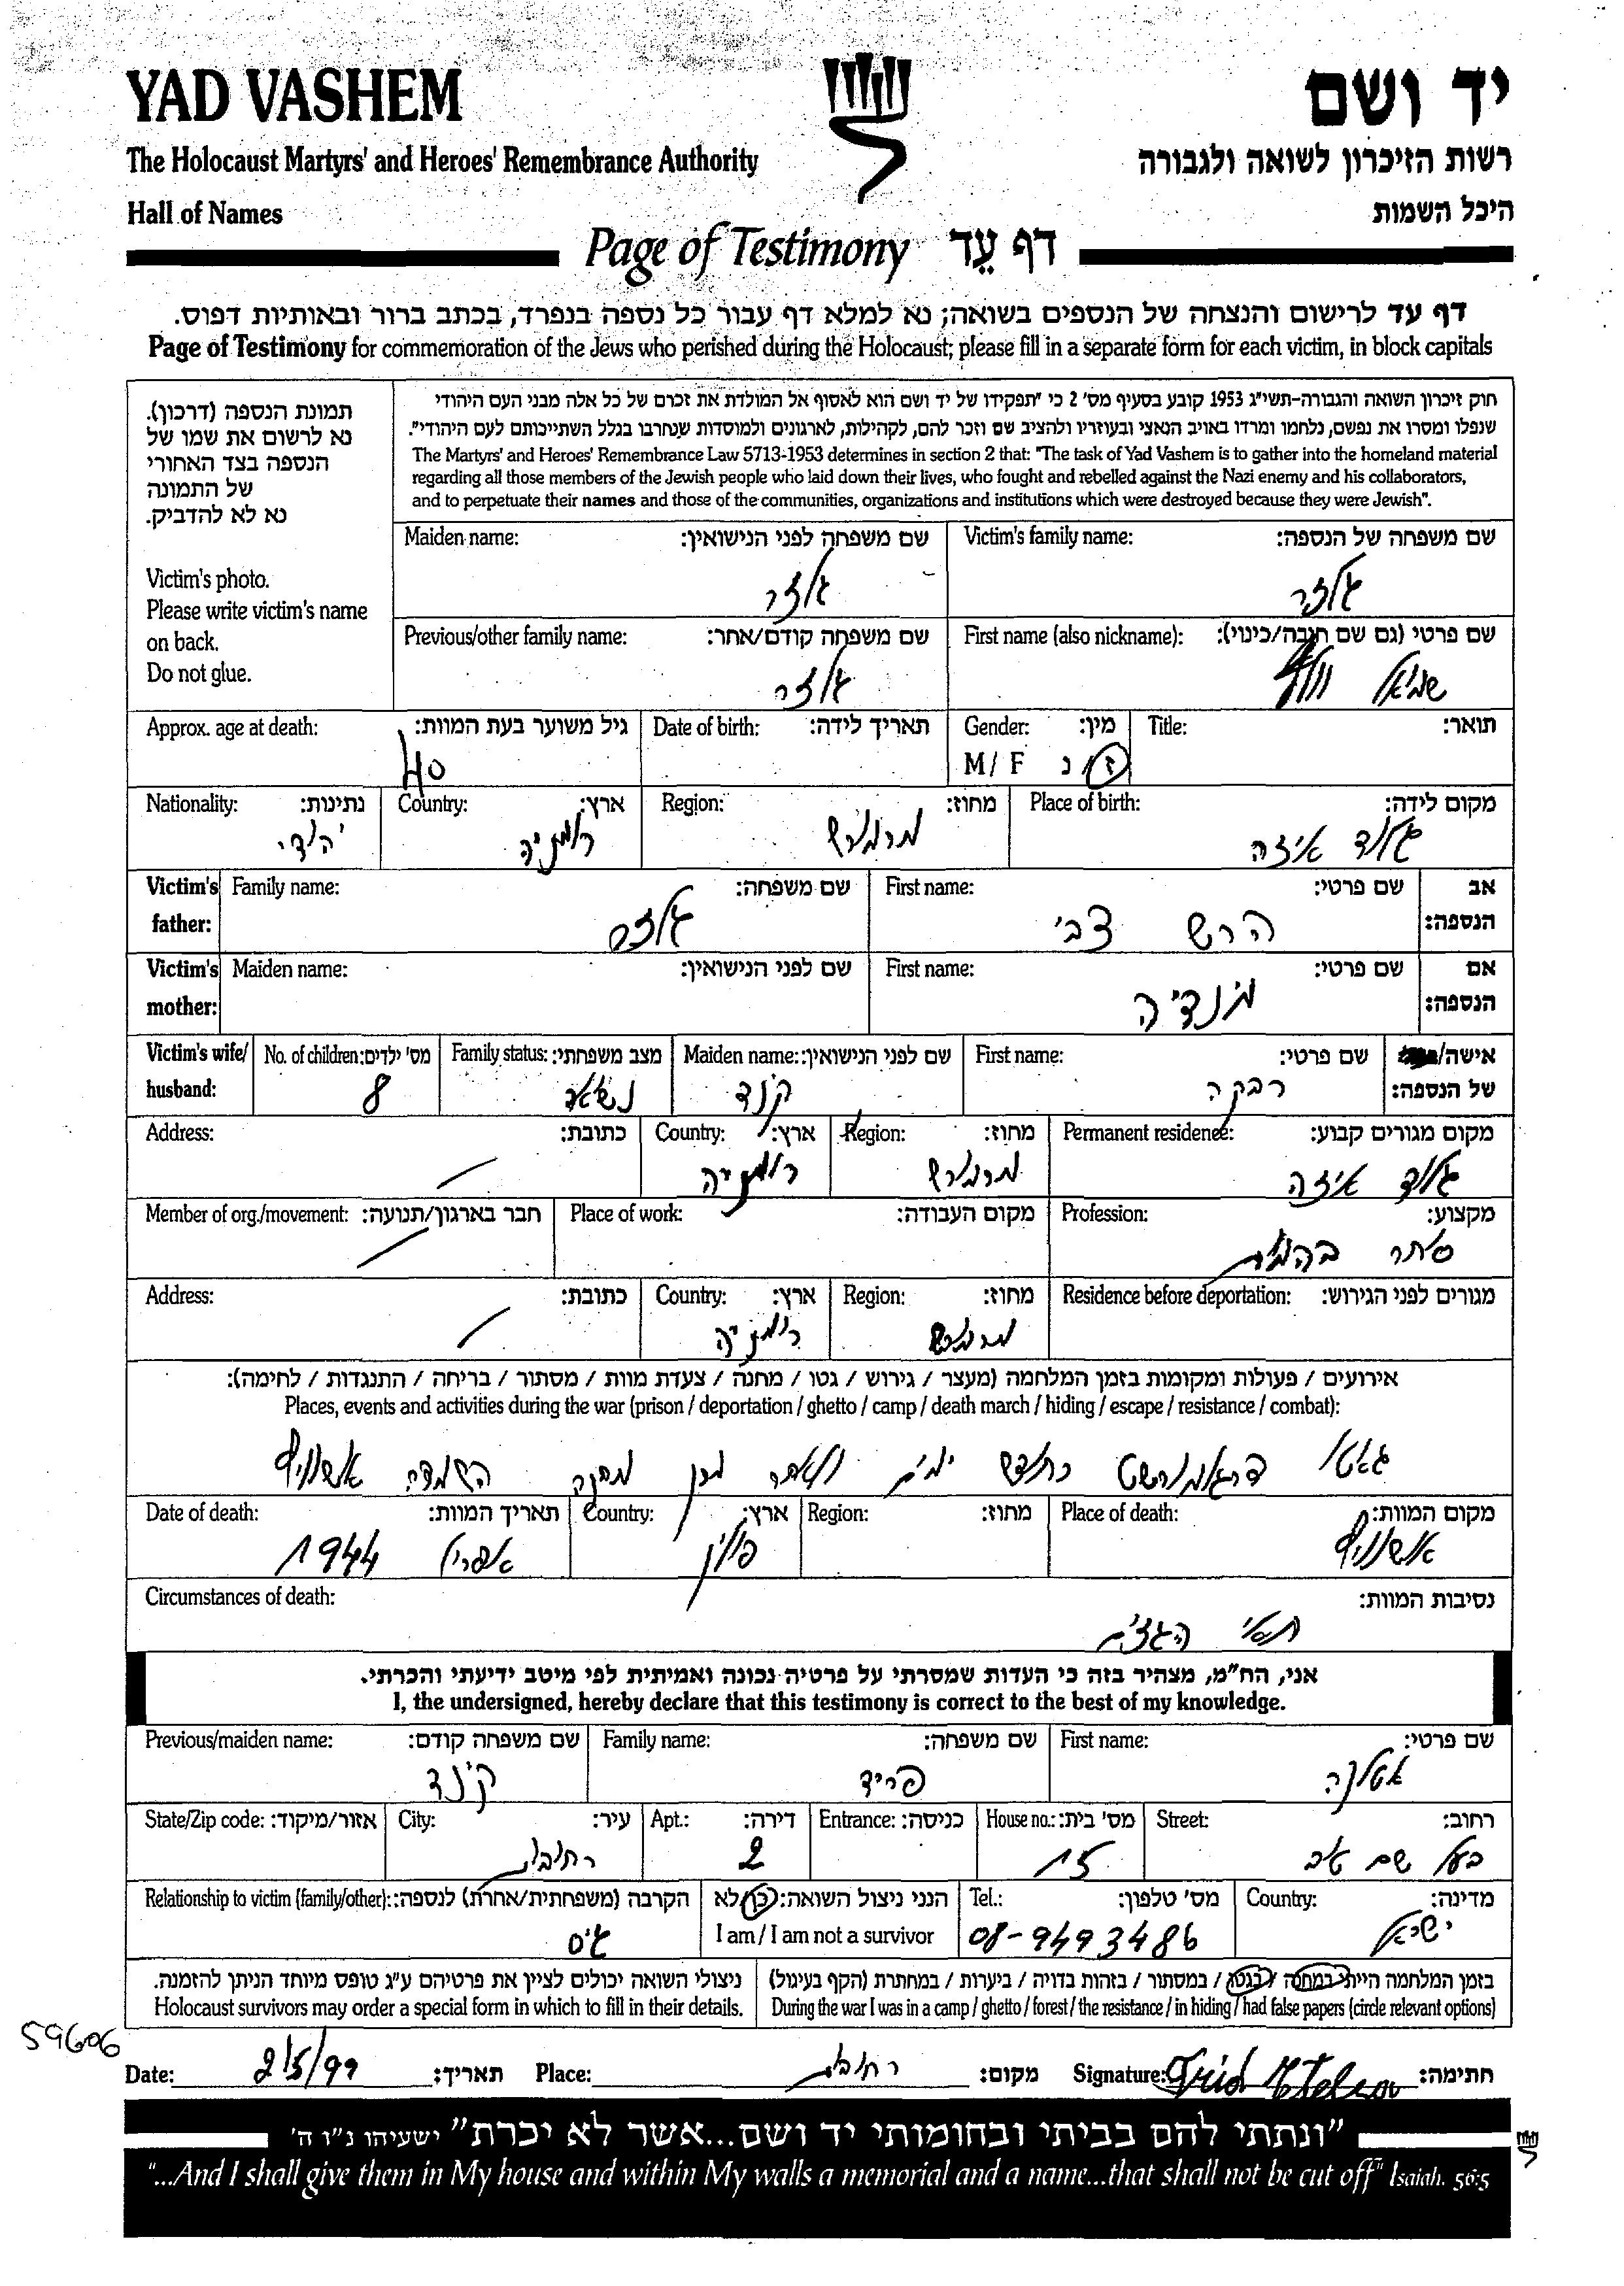 YAD VASHEM
יד ושם
The Holocaust Martyrs' and Heroes' Remembrance Authority
רשות הזיכרון לשואה ולגבורה
Hall of Names
היכל השמות
Page of Testimony דף עֵד
דף עד לרישום והנצחה של הנספים בשואה; נא למלא דף עבור כל נספה בנפרד, בכתב ברור ובאותיות דפוס.
Page of Testimony for commemoration of the Jews who perished during the Holocaust; please fill in a separate form for each victim, in block capitals
תמונת הנספה (דרכון).
נא לרשום את שמו של
הנספה בצד האחורי
של התמונה
נא לא להדביק.
Victim's photo.
Please write victim's name
on back.
Do not glue.
חוק זיכרון השואה והגבורה-תשי"ג 1953 קובע בסעיף מס' 2 כי "תפקידו של יד ושם הוא לאסוף אל המולדת את זכרם של כל אלה מבני העם היהודי
שנפלו ומסרו את נפשם, נלחמו ומרדו באויב הנאצי ובעוזריו ולהציב שם וזכר להם, לקהילות, לארגונים ולמוסדות שנחרבו בגלל השתייכותם לעם היהודי".
The Martyrs' and Heroes' Remembrance Law 5713-1953 determines in section 2 that: "The task of Yad Vashem is to gather into the homeland material
regarding all those members of the Jewish people who laid down their lives, who fought and rebelled against the Nazi enemy and his collaborators,
and to perpetuate their names and those of the communities, organizations and institutions which were destroyed because they were Jewish".
Victim's family name: שם משפחה של הנספה:
Maiden name: שם משפחה לפני הנישואין:
First name (also nickname): שם פרטי (גם שם חיבה/כינוי):
שמואל
Previous/other family name: שם משפחה קודם/אחר:
Title: תואר:
Gender: מין:
M/ F ז/ נ
Date of birth: תאריך לידה:
Approx. age at death: גיל משוער בעת המוות:
40
Place of birth: מקום לידה:
Region: מחוז:
מרמורש
Country: ארץ:
רומניה
Nationality: נתינות:
יהודי
Victim's father: אב הנספה:
First name: שם פרטי:
הרש צבי
Family name: שם משפחה:
Victim's mother: אם הנספה:
First name: שם פרטי:
Maiden name: שם לפני הנישואין:
Victim's wife/ husband: אישה/ של הנספה:
First name: שם פרטי:
רבקה
Maiden name: שם לפני הנישואין:
Family status: מצב משפחתי:
נשוא
No. of children: מס' ילדים:
8
Permanent residence: מקום מגורים קבוע:
Region: מחוז:
מרמורש
Country: ארץ:
רומניה
Address: כתובת:
Profession: מקצוע:
סוחר בהמות
Place of work: מקום העבודה:
Member of org./movement: חבר בארגון/תנועה:
Residence before deportation: מגורים לפני הגירוש:
Region: מחוז:
מרמורש
Country: ארץ:
רומניה
Address: כתובת:
אירועים / פעולות ומקומות בזמן המלחמה (מעצר / גירוש / גטו / מחנה / צעדת מוות / מסתור / בריחה / התנגדות / לחימה):
Places, events and activities during the war (prison / deportation / ghetto / camp / death march / hiding / escape / resistance / combat):
גטו כחודש ימים ולאחר מכן מחנה השמדה אושוויץ
Place of death: מקום המוות:
אושוויץ
Region: מחוז:
Country: ארץ:
פולין
Date of death: תאריך המוות:
אפריל 1944
Circumstances of death: נסיבות המוות:
תאי הגזים
אני, הח"מ, מצהיר בזה כי העדות שמסרתי על פרטיה נכונה ואמיתית לפי מיטב ידיעתי והכרתי.
I, the undersigned, hereby declare that this testimony is correct to the best of my knowledge.
First name: שם פרטי:
אטלנה
Family name: שם משפחה:
פריד
Previous/maiden name: שם משפחה קודם:
קינד
Street: רחוב:
בעל שם טוב
House no.: מס' בית:
15
Entrance: כניסה:
Apt.: דירה:
2
City: עיר:
רחובות
State/Zip code: אזור/מיקוד:
Country: מדינה:
ישראל
Tel.: מס' טלפון:
08-9493486
הנני ניצול השואה: כן/לא
I am / I am not a survivor
Relationship to victim (family/other): הקרבה (משפחתית/אחרת) לנספה:
גיס
בזמן המלחמה הייתי במחנה / בגטו / במסתור / בזהות בדויה / ביערות / במחתרת (הקף בעיגול)
During the war I was in a camp / ghetto / forest / the resistance / in hiding / had false papers (circle relevant options)
ניצולי השואה יכולים לציין את פרטיהם ע"ג טופס מיוחד הניתן להזמנה.
Holocaust survivors may order a special form in which to fill in their details.
59606
Date: 2/5/99 תאריך: Place: רחובות מקום: Signature: Frid Etelna חתימה:
"ונתתי להם בביתי ובחומותי יד ושם...אשר לא יכרת" ישעיהו נ"ו ה'
"...And I shall give them in My house and within My walls a memorial and a name...that shall not be cut off" Isaiah. 56:5